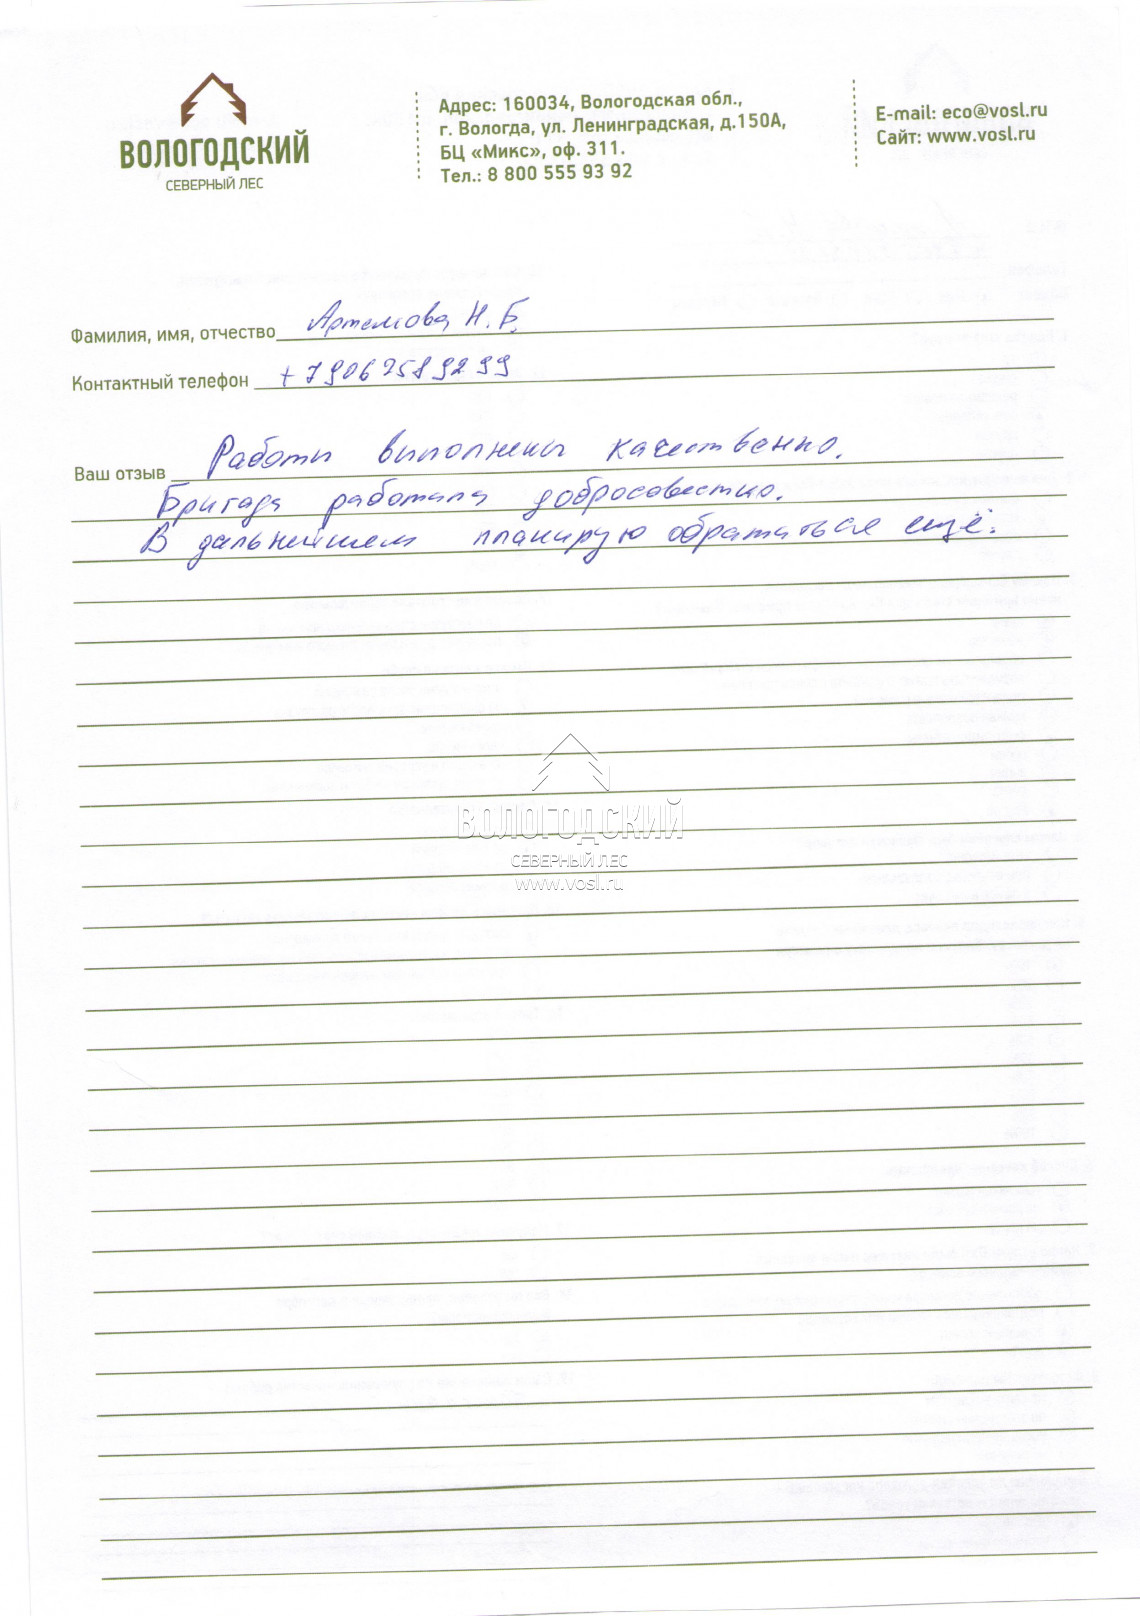 ВОЛОГОДСКИЙ
СЕВЕРНЫЙ ЛЕС
Адрес: 160034, Вологодская обл.,
г. Вологда, ул. Ленинградская, д.150А,
БЦ «Микс», оф. 311.
Тел.: 8 800 555 93 92
E-mail: eco@vosl.ru
Сайт: www.vosl.ru
Фамилия, имя, отчество Артемова Н.Б.
Контактный телефон +79067589299
Ваш отзыв Работы выполнены качественно.
Бригада работала добросовестно.
В дальнейшем планирую обратиться ещё.
ВОЛОГОДСКИЙ
СЕВЕРНЫЙ ЛЕС
www.vosl.ru